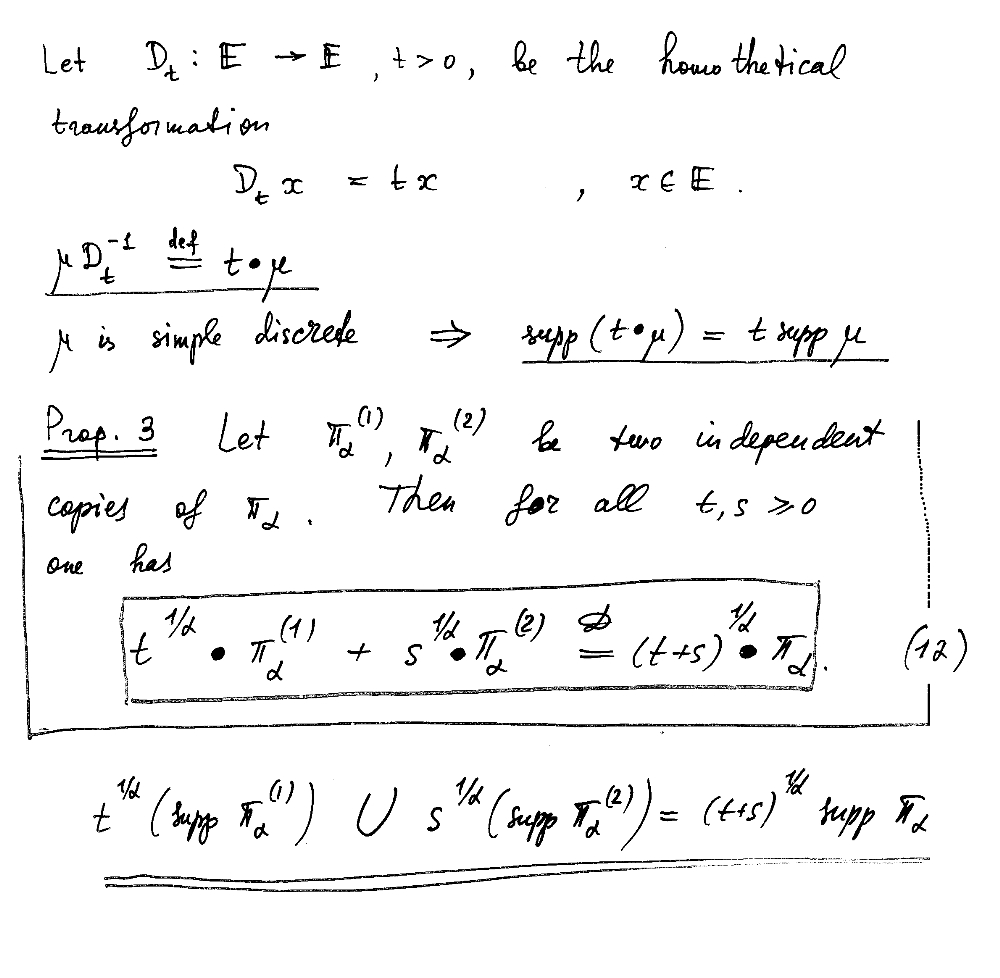 Let D_t : 𝔼 → 𝔼 , t > 0, be the homothetical
transformation
D_t x = t x , x ∈ 𝔼 .
μ D_t^{-1} def= t • μ
μ is simple discrete ⇒ supp (t • μ) = t supp μ
Prop. 3 Let π_α^{(1)}, π_α^{(2)} be two independent
copies of π_α . Then for all t, s ⩾ 0
one has
t^{1/α} • π_α^{(1)} + s^{1/α} • π_α^{(2)} 𝒟= (t+s)^{1/α} • π_α . (12)
t^{1/α} (supp π_α^{(1)}) ∪ s^{1/α} (supp π_α^{(2)}) = (t+s)^{1/α} supp π_α